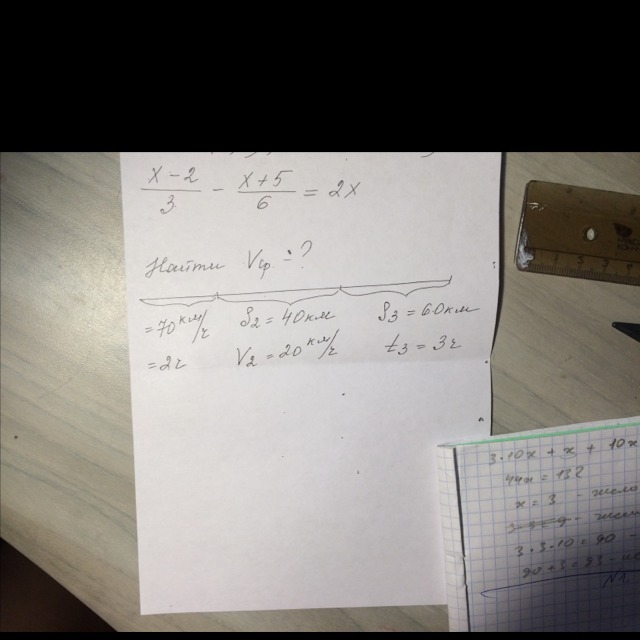 x-2/3 - x+5/6 = 2x
Найти Vср - ?
= 70 км/ч S2 = 40 км S3 = 60 км
= 2ч V2 = 20 км/ч t3 = 3ч
3·10x + x + 10x
44x = 132
x = 3 -
3·3·10 = 90
90+3 = 93